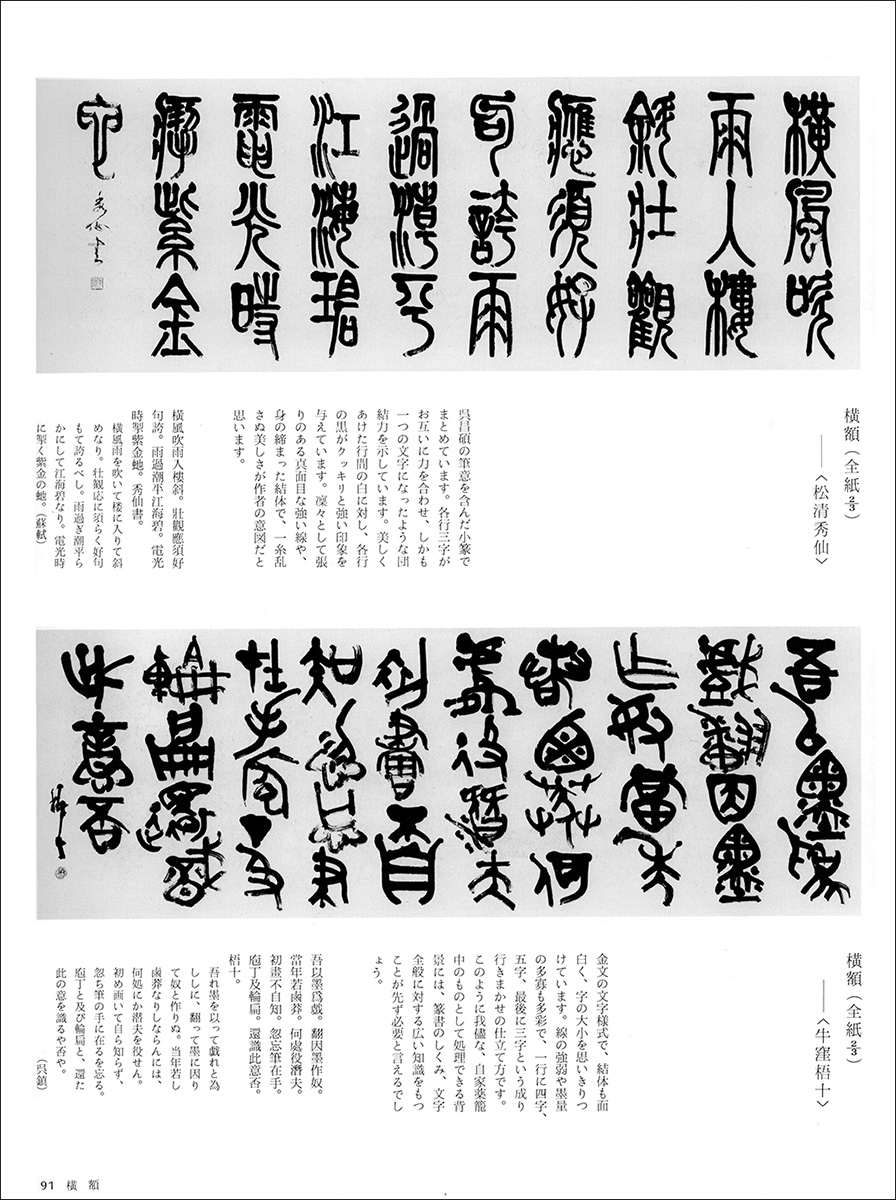 橫風吹
雨入樓
斜壯觀
應須好
句誇雨
過潮平
江海碧
電光時
掣紫金
虵
秀仙書
橫額（全紙⅔）
――〈松清秀仙〉
呉昌碩の筆意を含んだ小篆で
まとめています。各行三字が
お互いに力を合わせ、しかも
一つの文字になったような団
結力を示しています。美しく
あけた行間の白に対し、各行
の黒がクッキリと強い印象を
与えています。凜々として張
りのある真面目な強い線や、
身の締まった結体で、一糸乱
さぬ美しさが作者の意図だと
思います。
橫風吹雨入樓斜。壯觀應須好
句誇。雨過潮平江海碧。電光
時掣紫金虵。秀仙書。
横風雨を吹いて楼に入りて斜
めなり。壮観応に須らく好句
もて誇るべし。雨過ぎ潮平ら
かにして江海碧なり。電光時
に掣く紫金の虵。（蘇軾）
吾以墨爲
戲翻因墨
作奴當年
若鹵莽何
處役潛夫
初畫不自
知忽忘筆
在手庖丁
及輪扁還識
此意否
梧十
橫額（全紙⅔）
――〈牛窪梧十〉
金文の文字様式で、結体も面
白く、字の大小を思いきりつ
けています。線の強弱や墨量
の多寡も多彩で、一行に四字、
五字、最後に三字という成り
行きまかせの仕立て方です。
このように我儘な、自家薬籠
中のものとして処理できる背
景には、篆書のしくみ、文字
全般に対する広い知識をもつ
ことが先ず必要と言えるでし
ょう。
吾以墨爲戲。翻因墨作奴。
當年若鹵莽。何處役潛夫。
初畫不自知。忽忘筆在手。
庖丁及輪扁。還識此意否。
梧十。
吾れ墨を以って戯れと為
ししに、翻って墨に因り
て奴と作りぬ。当年若し
鹵莽なりしならんには、
何処にか潜夫を役せん。
初め画いて自ら知らず、
忽ち筆の手に在るを忘る。
庖丁と及び輪扁と、還た
此の意を識るや否や。
（呉鎮）
91 橫額